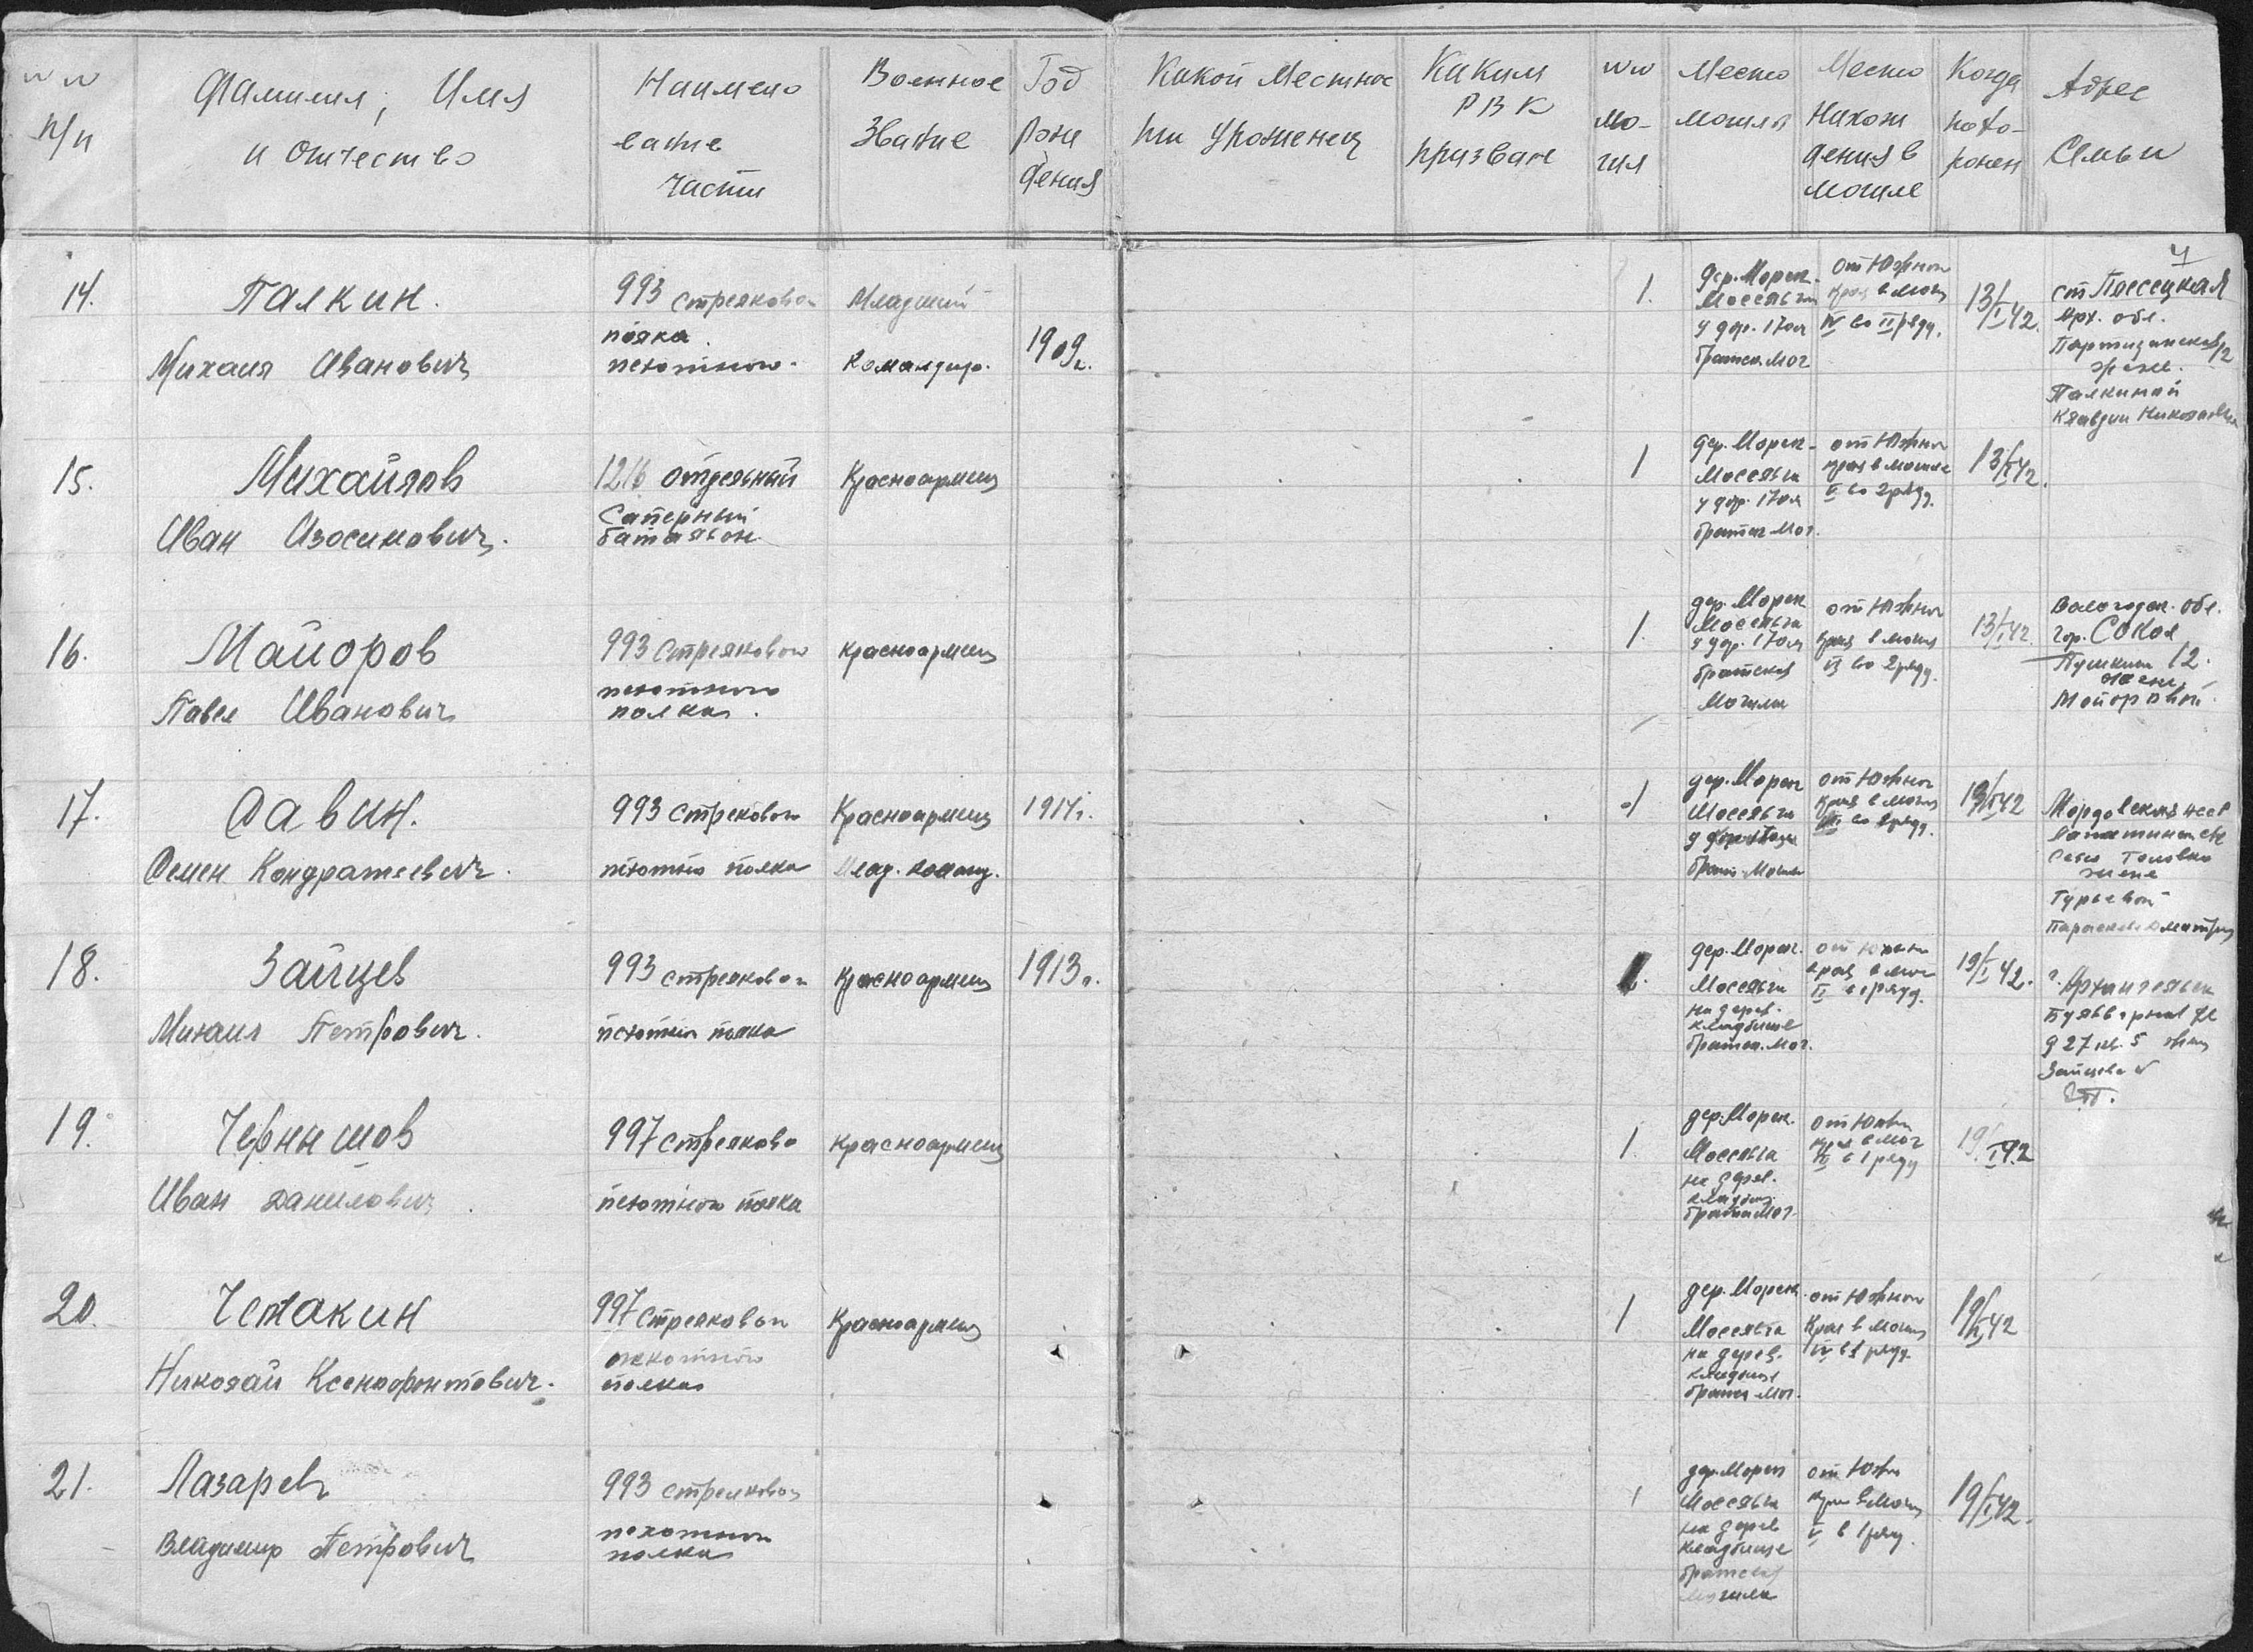 №№ п/п
Фамилия, Имя и отчество
Наимено вание части
Военное Звание
Год рож дения
Какой местнос ти Уроженец
Каким РВК призван
№№ мо- гил
Место могилы
Место Нахож дения в могиле
Когда похо- ронен
Адрес Семьи
4
14.
Палкин.
Михаил Иванович
993 стрелковой
полка
пехотного.
Младший
Командир.
1909г.
1.
дер. Морск.
Моссельга
у дор. 170 м
братск. мог
от Южной
края в могил
IV во II ряду.
13/I 42.
ст Плесецкая
Арх. обл.
Партизанская 12
жене.
Палкиной
Клавдии Николаевне
15.
Михайлов
Иван Изосимович.
1216 отдельный
Саперный
батальон
Красноармеец
1
дер. Морск-
Моссельга
у дор. 170 м
братск мог.
от Южной
края в могиле
V во 2 ряду.
13/I 42.
16.
Майоров
Павел Иванович
993 Стрелкового
пехотного
полка.
Красноармеец
1.
дер. Морск
Моссельга
у дор. 170 м
братская
Могила
от Южной
края в могил
VI во 2 ряду.
13/I 42.
Вологодск. обл.
гор. Сокол
Пушкина 12.
жене.
Майоровой
17.
Савин.
Семен Кондратьевич.
993 Стрековой
пехотно полка
Красноармеец
Млад. команд.
1914г.
1
дер. Морск
Моссельга
братс. Могила
от Южной
края в могил
19/I 42
Мордовская
Село
жене
Гурьевой
18.
Зайцев
Михаил Петрович.
993 стрелковой
пехотной полка
Красноармеец
1913г.
1.
дер. Морск.
Моссельга
на дерев.
кладбище
братск. мог.
от южной
края в мог
II в 1 ряду.
19/I 42.
г. Архангельск
д 27 кв. 5
Зайцевой
19.
Чернышов
Иван Данилович
997 стрелково
пехотной полка
Красноармеец
1.
дер. Морск.
Моссельга
на дерев.
кладбищ.
братск мог.
от Южн
края в мог
III в 1 ряду
19/I 42
20.
Чепакин
Николай Ксенофонтович.
997 стрелковой
пехотного
полка
Красноармеец
1
дер. Морск
Моссельга
на дерев.
кладбище
братск мог.
от Южной
Края в могил
IV в 1 ряду.
19/I 42
21.
Лазарев
Владимир Петрович
993 стрелковой
пехотной
полка
1
дер. Морск
Моссельга
на дерев
кладбище
братская
могила
от Южн
края в Могил
V в 1 ряд.
19/I 42.